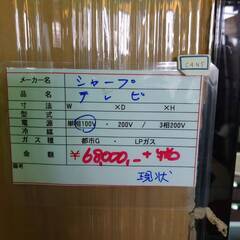 メーカー名 シャープ
品名 テレビ
寸法 W ×D ×H
型式
電源 単相100V ・ 200V / 3相200V
冷媒
ガス種 都市G ・ LPガス
金額 ¥68,000,-+税
備考 現状